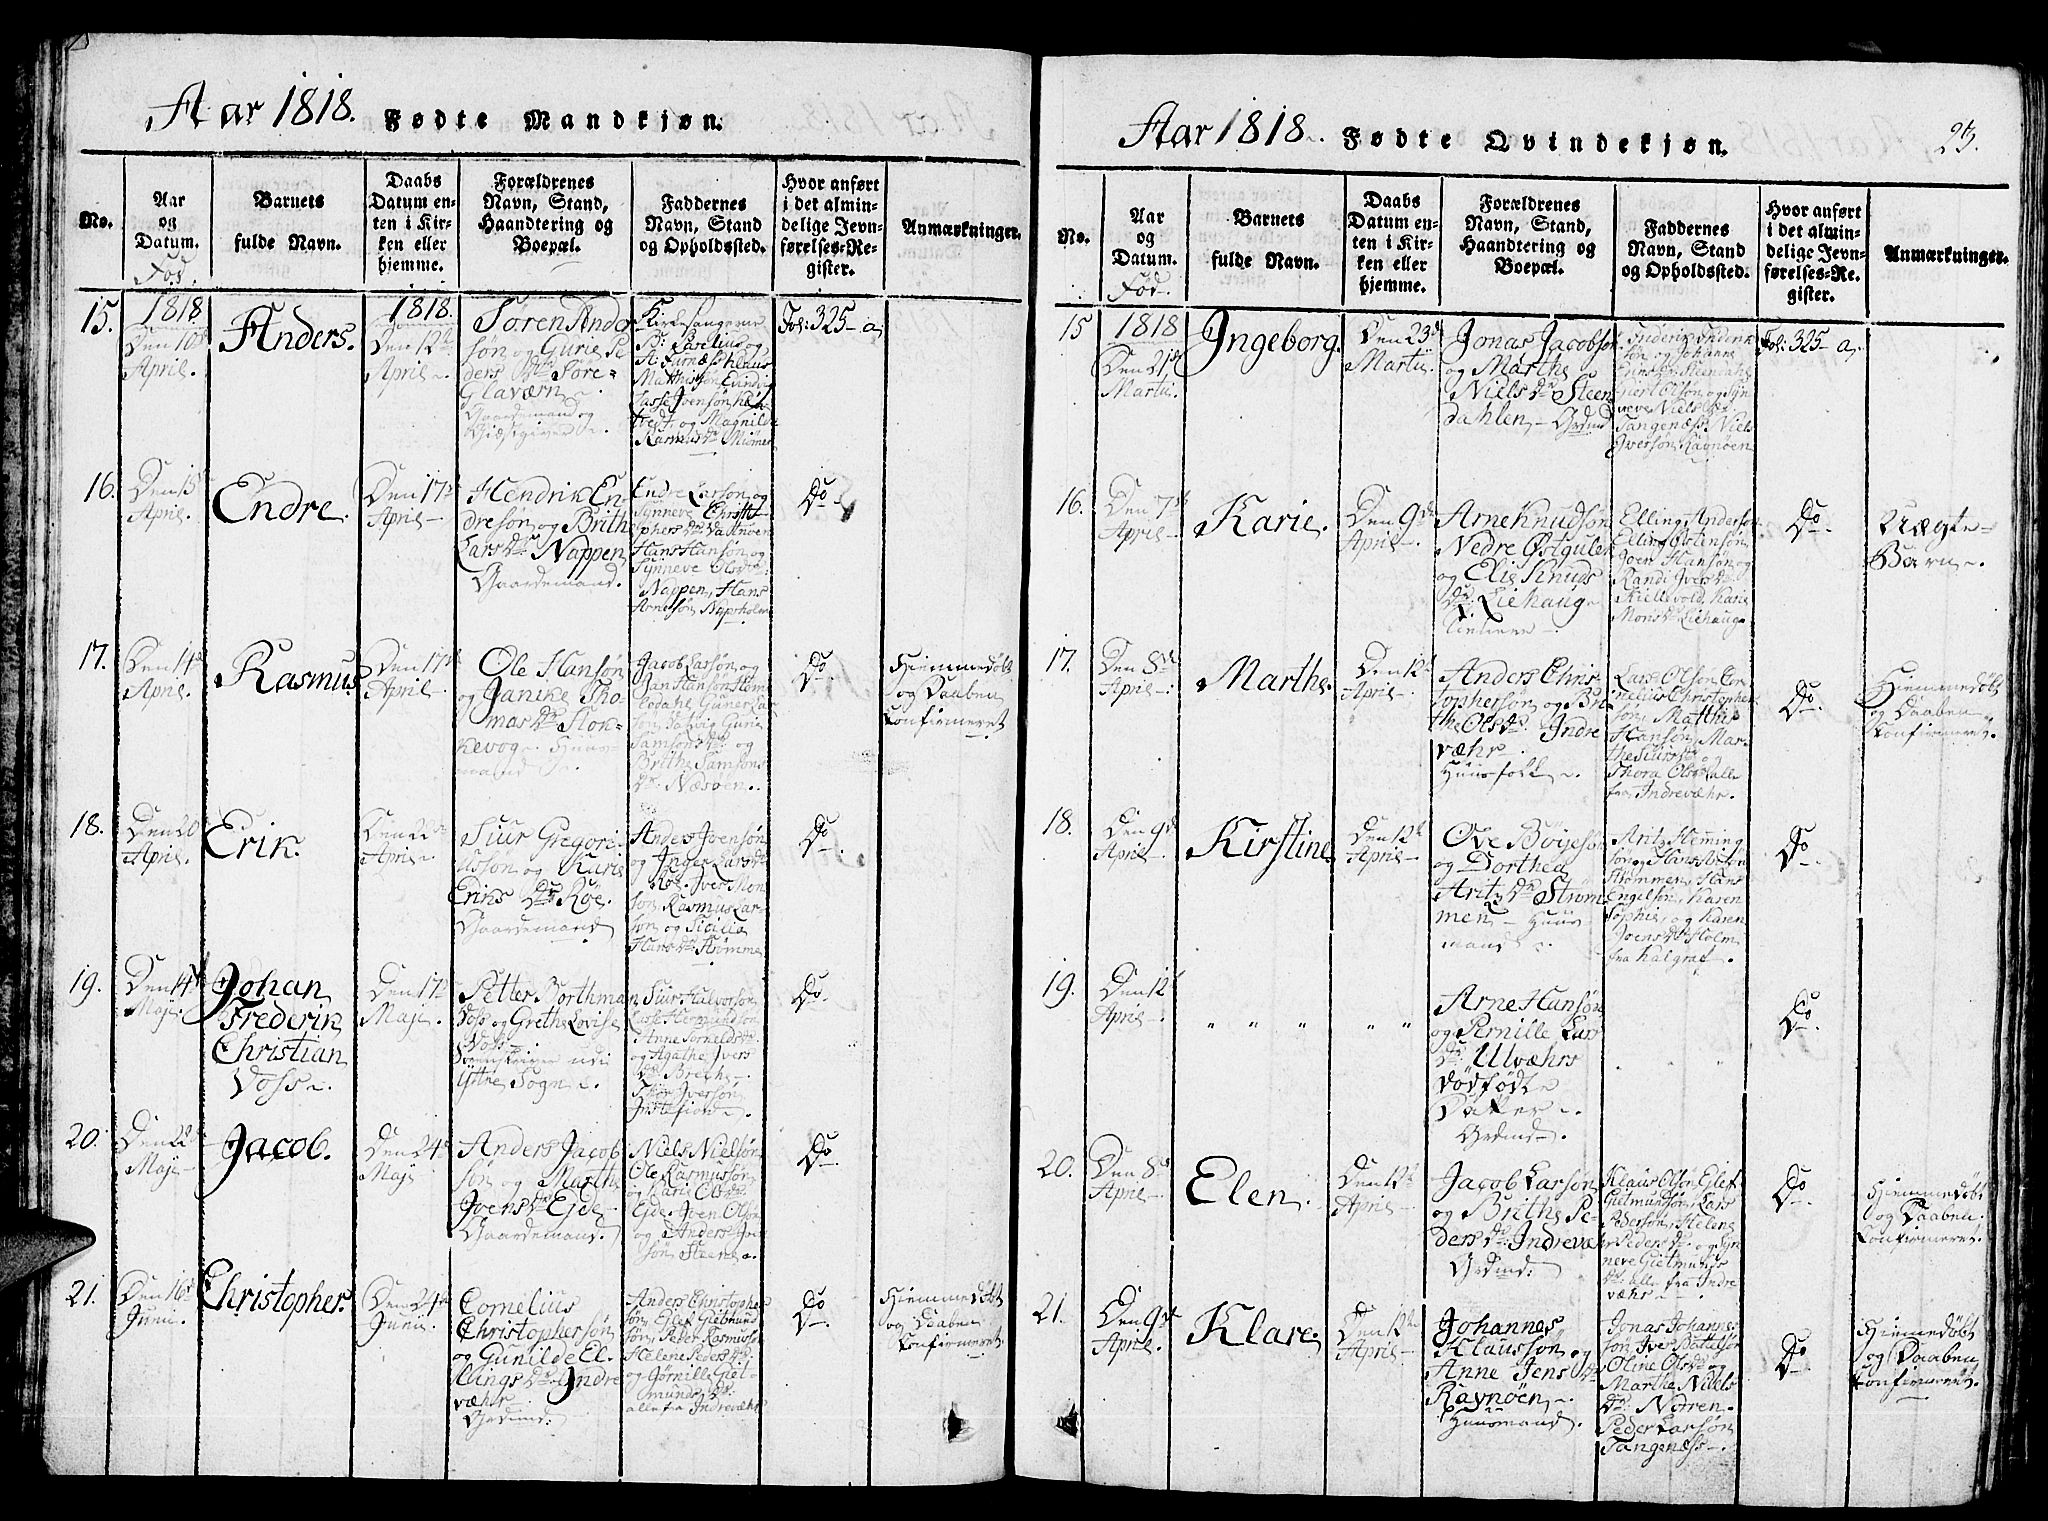 Aar 1818. Fødte Mandkjøn.
No.
Aar
og
Datum.
Fød.
Barnets
fulde Navn.
Daabs
Datum en-
ten i Kir-
ken eller
hjemme.
Forældrenes
Navn, Stand,
Haandtering og
Boepæl.
Faddernes
Navn, Stand
og Opholdssted.
Hvor anført
i det almin-
delige Jevn-
førelses-Re-
gister.
Anmærkninger.
15.
1818
Den 10de
April.
Anders.
1818.
Den 12te
April.
Søren Ander
søn og Gurie Pe-
ders Dr. Søre-
Glaværn.
Gaardemand og
Giæstgiver
Kirkesangerne
Matthissøn Eivindvig
Lasse Jvensøn
og Magnilde
Rasmus Dr.
Fol: 325- a,
16.
Den 15
April.
Endre.
Den 17de
April
Hendrik En-
dresøn og Brithe
Lars Dr. Nappen
Gaardemand.
Endre Larsøn og
Synneve Christ
ophers Dr.
Hans Hansøn og
Synneve Ols Dr.
Nappen, Hans
Arnesøn
Do
17.
Den 14de
April.
Rasmus
Den 17de
April
Ole Hansøn
og Janike Tho-
mas Dr. Stok-
kevog. Huus-
mand
Jacob Larsøn og
Jan Hansøn
Guner Lar
søn
Samsons Dr. og
Brithe Samsons
Dr. Næsøen.
Do
Hiemmedøbt
og Daaben
Confirmeret
18.
Den 20de
April.
Erik.
Den 22de
April
Siur Gregori-
usson og Karie
Eriks Dr. Røe.
Gaardemand
Anders Jvensøn
og Inger Lars Dr.
Røe. Iver Mon
søn, Rasmus Lar-
søn og Sicilie
Hans Dr.
Do
19.
Den 14de
Maji
Johan
Frederik
Christian
Voss.
Den 17de
Maji.
Petter Borthman
Voss og Grethe Lovise
Voss
Sorenskriver udi
Yttre Sogn
Siur Halvorsøn
og Agathe Ivers
Dr. Brech
Iversøn
Do.
20.
Den 22de
Maji
Jacob.
Den 24de
Maji
Anders Jacob
søn og Marthe
Jvens Dr. Eide
Gaardemand.
Niels Nielsøn
Ole Rasmussøn
og Cari Ols Dr.
Eide. Jven Olsøn
og Anders Jven
søn Steene
Do
21.
Den 16de
Juni.
Christopher.
Den 24de
Junii.
Cornelius
Christophersøn
og Gunilde El-
lings Dr. Indre
væhr
Grdmd:
Anders Christopher
søn, Elef Gietmund
søn, Peder Rasmussøn
Helene Peders Dr.
og Gørnille Giet-
munds Dr.
alle fra Indrevæhr
Do
Hiemmedøbt
og Daaben
Confirmeret
Aar 1818. Fødte Qvindekjøn.
23.
No.
Aar
og
Datum.
Fød.
Barnets
fulde Navn.
Daabs
Datum en-
ten i Kir-
ken eller
hjemme.
Forældrenes
Navn, Stand,
Haandtering og
Boepæl.
Faddernes
Navn, Stand
og Opholdssted.
Hvor anført
i det almin-
delige Jevn-
førelses-Re-
gister.
Anmærkninger.
15
1818
Den 21de
Martii
Ingeborg.
Den 23de
Martii
Jonas Jacobsøn
og Marthe
Niels Dr. Steen
dahlen, Grdmd
Friderik Friderik
søn og Johanne
Steendahl
Giert Olsøn og Syn
neve Niels Dr.
Tangenæss. Niels
Iversøn Ravnøen
Fol: 325- a,
16.
Den 7de
April
Karie.
Den 9de
April
Arne Knudsøn
Nedre Østgulen
og Elie Knuds
Dr. Liehaug
Elling Andersøn
Elling Ostensøn
Joen Hansøn og
Randi Ivers Dr.
Kiellevold, Karie
Mons Dr. Liehaug
Do
Uægte-
Barn.
17.
Den 8de
April
Marthe.
Den 12te
April
Anders Chris-
tophersøn og Bri-
the Ols Dr. Indre
væhr.
Huusfolk
Lars Olsøn Cor-
nelius Christopher
søn, Matthis
Hansøn, Mar-
the Siurs Dr. og
Thora Ols Dr. alle
fra Indrevæhr.
Do
Hiemmedøbt
og Daaben
Confirmeret.
18.
Den 9de
April
Kirstine
Den 12te
April
Ove Bøyesøn
og Dorthea
Aritz Dr. Strøm-
men, Huus
mand
Aritz Heming
søn og Hans
Strømmen, Hans
Engelsøn, Karen
Sophie, og Karen
Joens Dr. Holm
fra Kalgraf.
Do
19.
Den 12te
April
" " "
" "
Arne Hansøn
og Pernille Lars
Dr. Ulvæhrs
dødfødte
Datter
Grdmd
Do
20.
Den 8de
April
Elen.
Den 12te
April
Jacob Larsøn
og Brithe Pe-
ders Dr. Indrevæhr
Grdmd:
Klaus Olsøn, Elef
Gietmundsøn, Lars
Pedersøn, Helene
Peders Dr. og Syn
neve Gietmunds
Dr. alle fra Indre
væhr
Do
Hiemmedøbt
og Daaben
Confirmeret.
21.
Den 9de
April.
Klare.
Den 12te
April
Johannes
Klaussøn og
Anne Jens Dr.
Ravnøen
Huusmand.
Jonas Johannes
søn, Iver Battelsøn
Oline Ols Dr. og
Marthe Niels
Dr. Notren.
Peder Larsøn
Tangenæss
Do
Hiemmedøbt
og Daaben
Confirmeret.